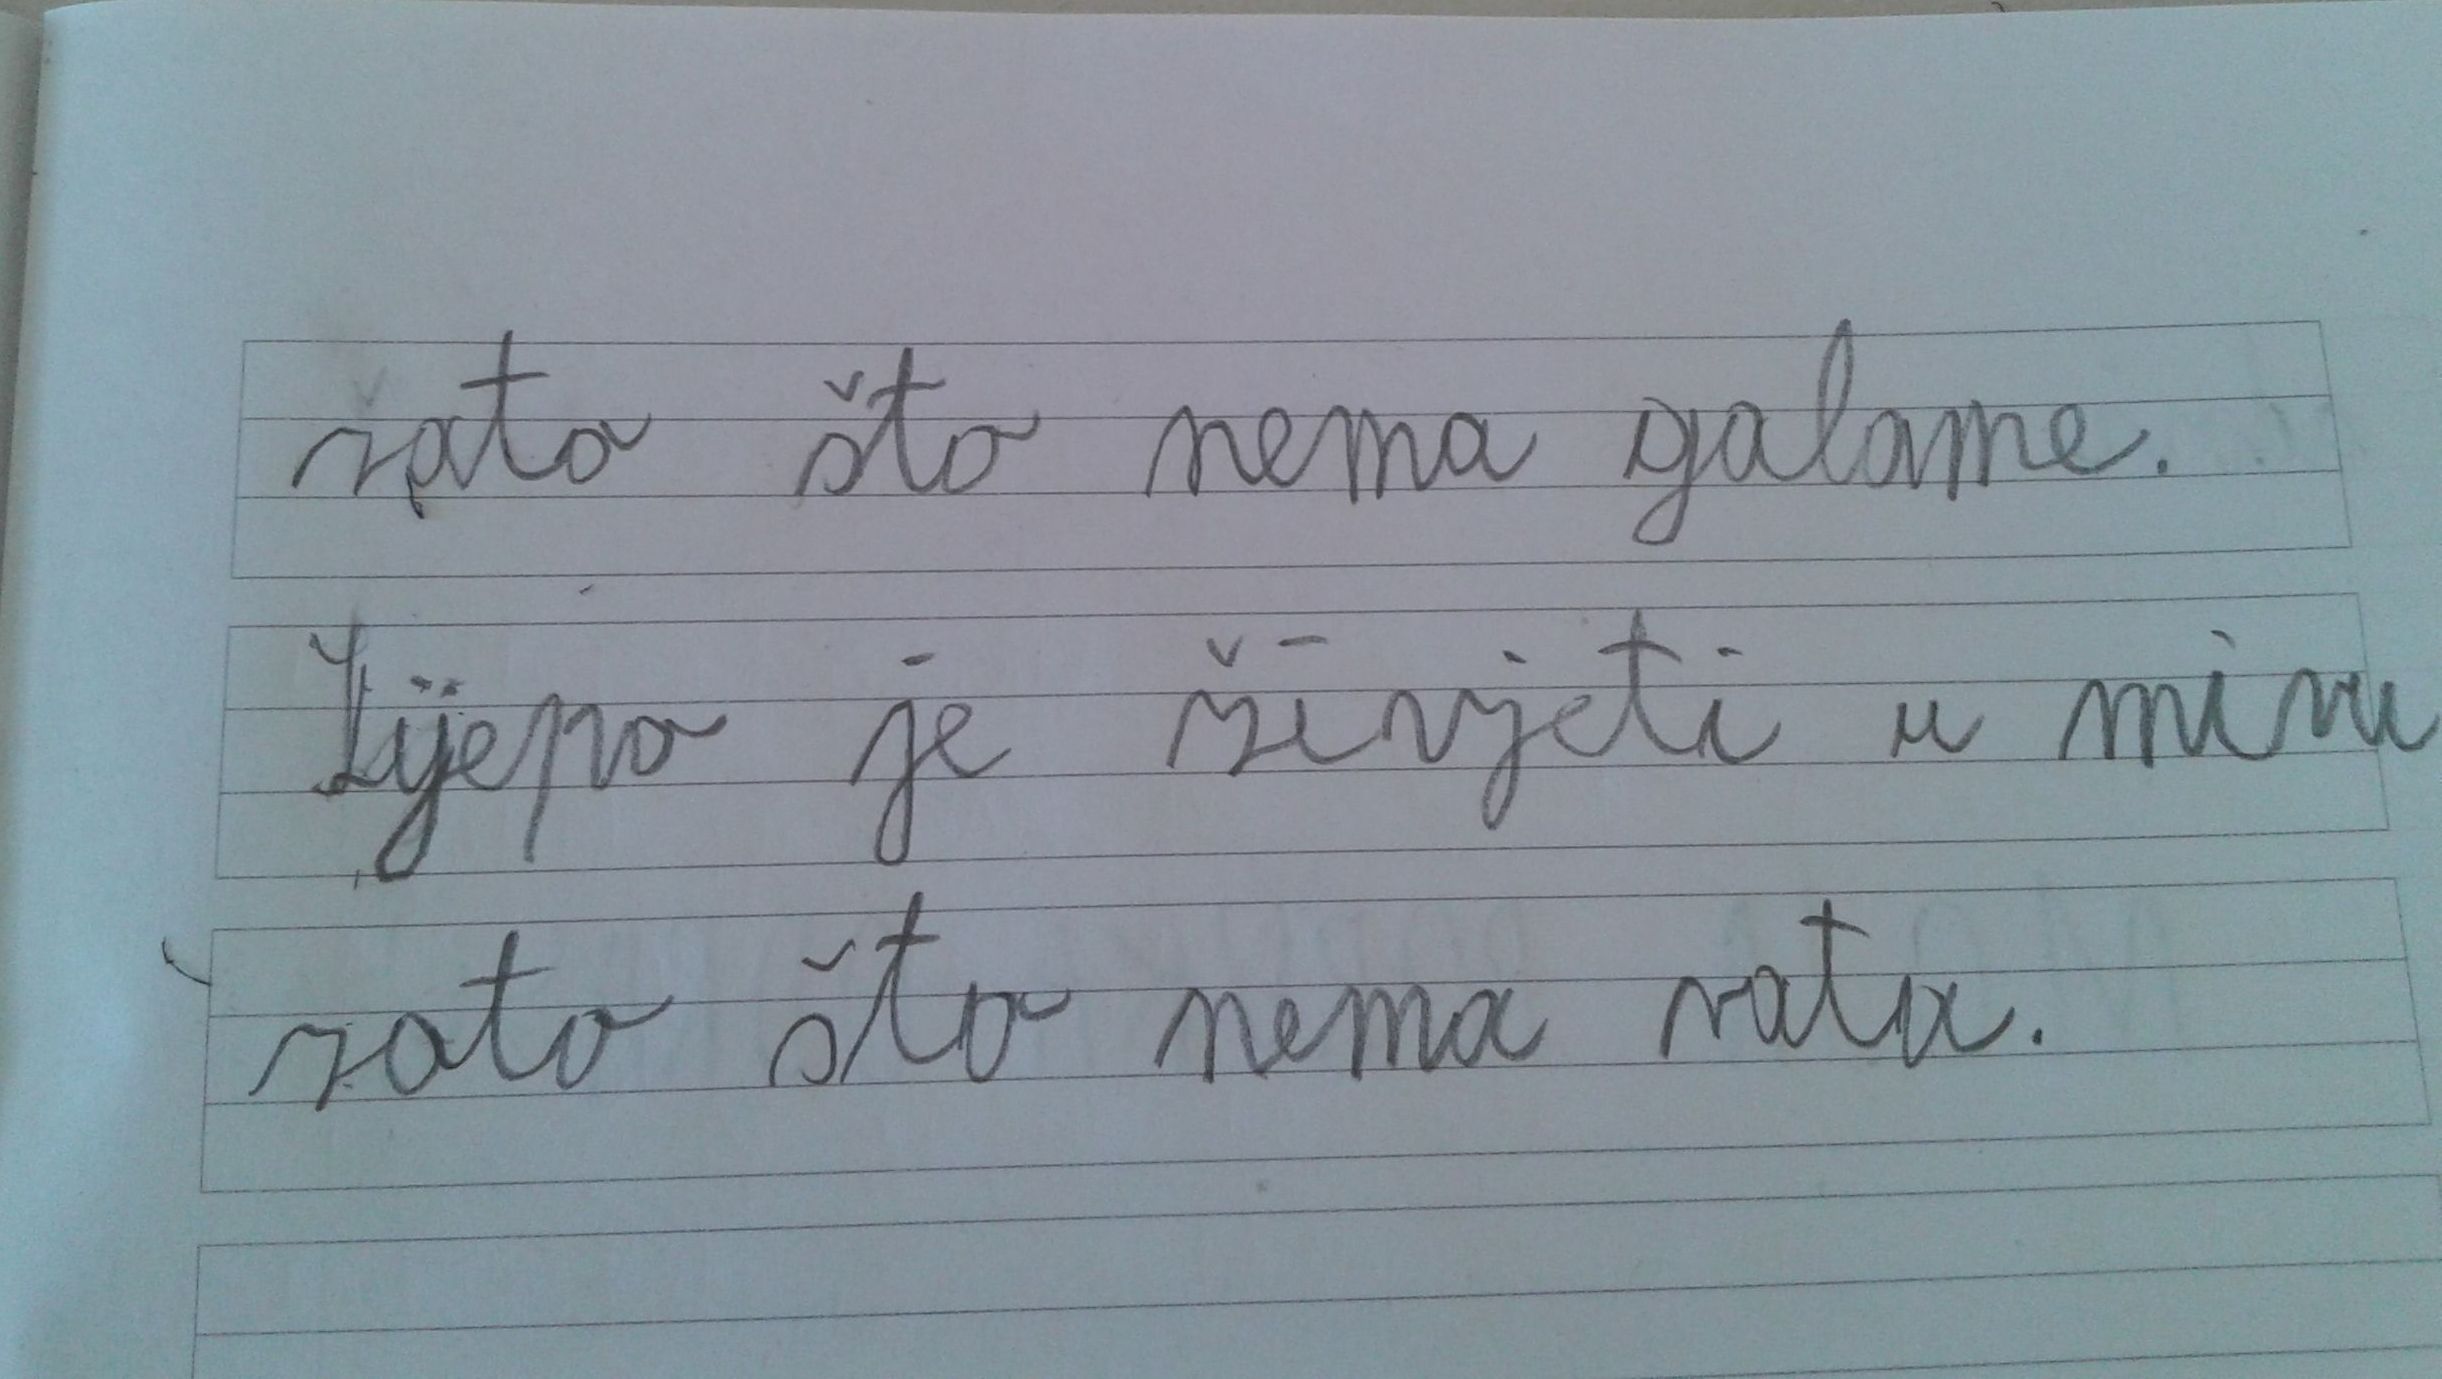 zato što nema galame.
Lijepo je živjeti u miru
zato što nema rata.